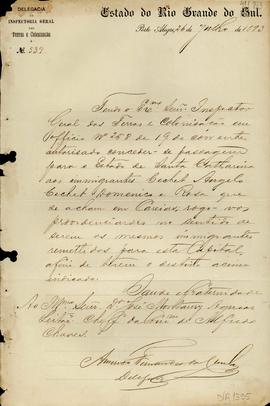 DELEGACIA
DA
INSPECTORIA GERAL
DAS
Terras e Colonisação
Estado do Rio Grande do Sul.
Porto Alegre, 26 de Julho de 1893
N. 539
Tendo o Exmo Senr. Inspector
Geral das Terras e Colonisação em
officio Nº 258 de 19 do corrente
autorisado conceder-se passagem
para o Estado de Santa Catharina
aos immigrantes Cechet Angelo
Cechet Domenico e Rosa que
se acham em Caxias, rogo vos
providenciardes no sentido de
serem os mesmos immigrantes
remettidos para esta Capital,
afim de terem o destino acima
indicado.
Saude e Fraternidade
Ao Illmo Senr. Dr José Montaury
Leitão. Chefe da Comm de Alfredo
Chaves.
Fernandes da
Delegado